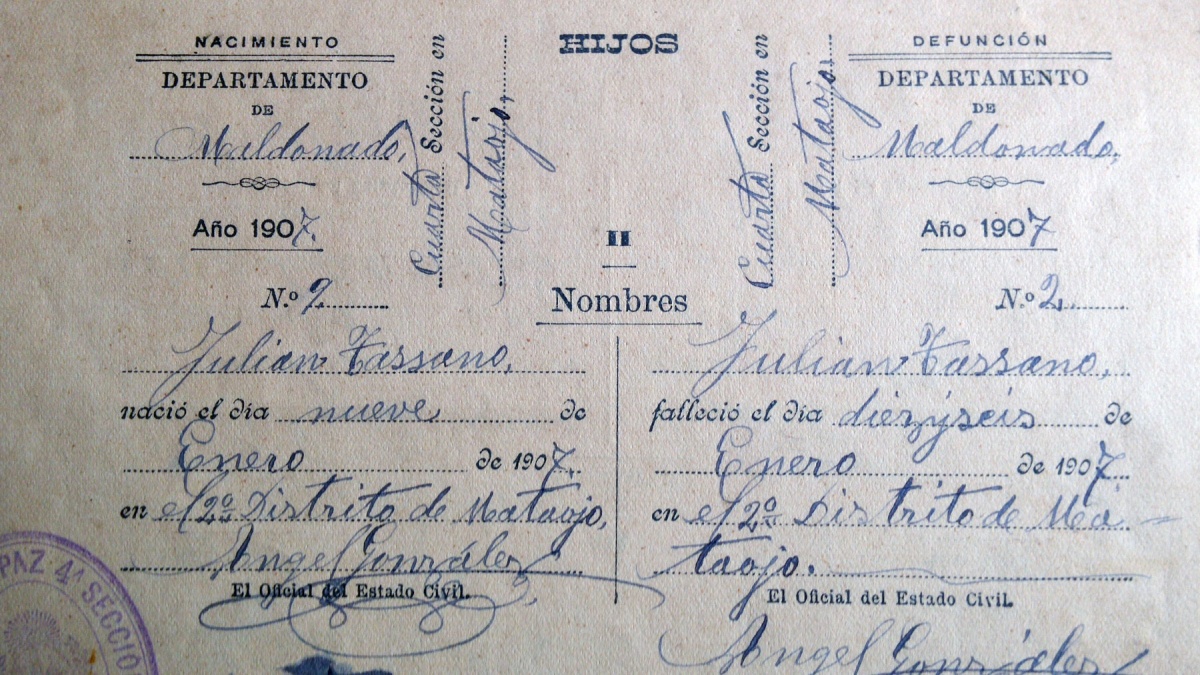 HIJOS
II
Nombres
NACIMIENTO
DEPARTAMENTO
DE
Maldonado,
Cuarta Sección en
Mataojo,
Año 1907.
N.º 2
Julian Tassano,
nació el día nueve de
Enero de 1907.
en el 2º Distrito de Mataojo,
Angel González
El Oficial del Estado Civil.
PAZ 4ª SECCIO
DEFUNCIÓN
DEPARTAMENTO
DE
Maldonado,
Cuarta Sección en
Mataojo.
Año 1907
N.º 2
Julian Tassano,
falleció el día diez y seis de
Enero de 1907
en el 2º Distrito de Ma-
taojo.
El Oficial del Estado Civil.
Angel González